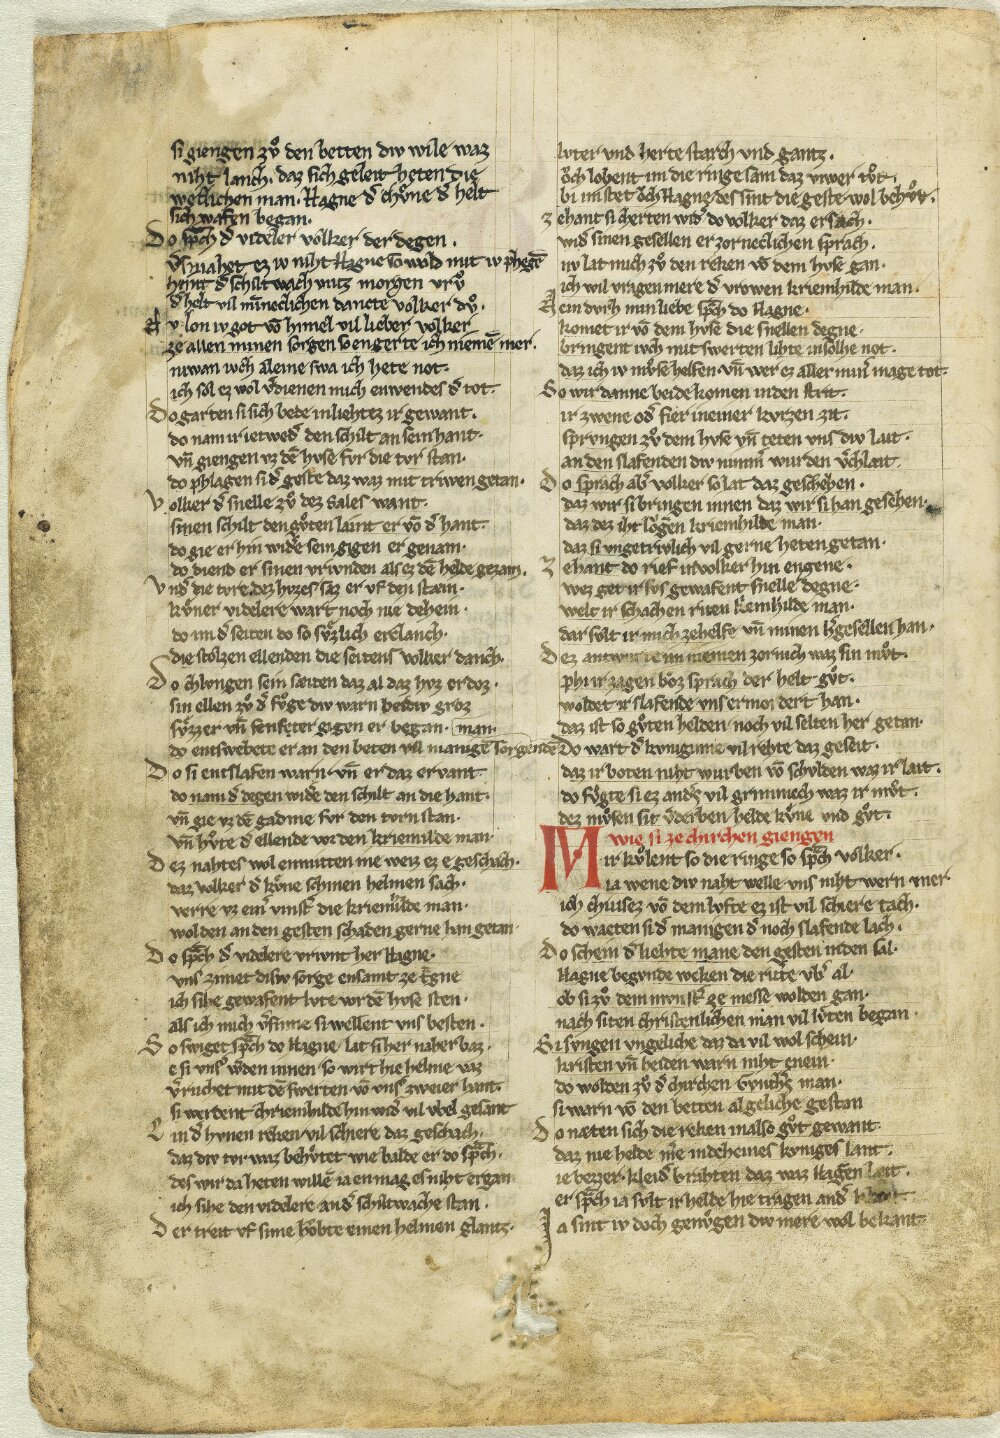 si giengen zvͦ den betten div wile waz
niht lanch. daz sich geleit heten die
wetlichen man. Hagne d͛ chvͦne d͛ helt
sich wafen began.
Do sp̄ch d͛ videler volker der degen.
v͛smahet ez iv niht Hagne so wold mit iv phegē
heint d͛ schiltwach vntz morgen vrvͦ
d͛ helt vil miñeclichen dancte volker dvͦ.
Nv lon iv got vō himel vil lieber volker
ze allen minen sorgen so engerte ich niemē mer.
niwan ivch aleine swa ich hete not.
ich sol ez wol v͛dienen mich enwendes d͛ tot.
Do garten si sich bede in liehtez ir gewant.
do nam ir ietwed͛ den schilt an sein hant.
vn̄ giengen vz dē hvse fvr die tvr stan.
do phlagen si d͛ geste daz waz mit triwen getan.
Volker d͛ snelle zvͦ dez sales want.
sinen schilt den gvͦten laint er vō d͛ hant.
do gie er hin wid͛e sein gigen er genam.
do diend er sinen vrivnden als ez dē helde gezam.
Vnd͛ die tvre dez hvzes saz er vf den stain.
kvͦner videlere wart noch nie dehein.
do im d͛ seiten do so svͦzlich erclanch.
die stolzen ellenden die seitens volker danch.
Do chlvngen sein sæiten daz al daz hvz erdoz.
sin ellen zvͦ d͛ fvͦge div warn beidiv groz
svͦzzer vn̄ senfter gigen er began. man.
do entswebete er an den beten vil manigē sorgendē
Do si entslafen warn vn̄ er daz ervant.
do nam d͛ degen wid͛e den schilt an die hant.
vn̄ gie vz dē gadme fvr den tvrn stan.
vn̄ hvͦte d͛ ellende vor den kriemilde man
Dez nahtes wol enmitten ine weiz ez e geschach.
daz volker d͛ kvͦne schinen helmen sach.
verre vz ein͛ vinst͛ die kriemhilde man
wolden an den gesten schaden gerne han getan.
Do sp̄ch d͛ videlere vrivnt her Hagne.
vns zimet disiv sorge ensamt ze tragne
ich sihe gewafent lvte vor dē hvse sten.
als ich mich v͛sinne si wellent vns besten.
So swiget sp̄ch do Hagne lat si her naher baz.
e si vns͛ w͛den innen so wirt hie helme vaz
v͛ruchet mit dē swerten vō vns͛ zweier hant.
si werdent chriemhilde hin wid͛ vil vbel gesant
Ein d͛ hvnen reken vil schiere daz geschach.
daz div tvr waz behvͦtet wie balde er do sp̄ch.
des wir da heten willē ia en mag es niht ergan
ich sihe den videlere an d͛ schiltwache stan.
Der treit vf sime hoͮbte einen helmen glantz.
lvter vnd herte starch vnd gantz.
oͮch lohent im die ringe sam daz viwer tvͦt.
bi im stet oͮch Hagne des sint die geste wol behvͦt.
Zehant si cherten wid͛ do volker daz ersach.
wid͛ sinen gesellen er zorneclichen sprach.
nv lat mich zvͦ den reken vō dem hvse gan.
ich wil vragen mere d͛ vrowen kriemhilde man.
Nein dvrh min liebe sp̄ch do Hagne.
komet ir vō dem hvse die snellen degne.
bringent ivch mit swerten lihte in solhe not.
daz ich iv mvͦse helfen vn̄ wer ez aller min͛ mage tot.
So wir danne beide komen in den strit.
ir zwene od͛ fier in einer kvrzen zit.
sprvngen zvͦ dem hvse vn̄ teten vns div lait.
an den slafenden div nimm͛ wurden v͛chlait.
Do sprach ab͛ volker so lat daz geschehen.
daz wir si bringen innen daz wir si han gesehen.
daz dez iht loͮgen kriemhilde man.
daz si vngetriwlich vil gerne heten getan.
Zehant do rief in volker hin engene.
wez get ir svs gewafent snelle degne.
welt ir schachen riten kriemhilde man.
dar svlt ir mich ze helfe vn̄ minen h͛gesellen han.
Dez antwrte im niemen zornich waz sin mvͦt.
phi ir zagen boz sprach der helt gvͦt.
woldet ir slafende vns ermordert han.
daz ist so gvͦten helden noch vil selten her getan.
Do wart d͛ kvniginne vil rehte daz geseit.
daz ir boten niht wurben vō schvlden waz ir lait.
do fvͦgte si ez and͛s vil grimmech waz ir mvͦt.
dez mvͦsen sit v͛derben helde kvͦne vnd gvͦt.
wie si ze chirchen giengen
Mir kvͦlent so die ringe so sp̄ch volker.
ia wene div naht welle vns niht wern mer
ich chiusez vō dem lvfte ez ist vil schiere tach.
do wacten si d͛ manigen d͛ noch slafende lach.
Do schein d͛ liehte mane den gesten in den sal.
Hagne begvnde weken die rit͛e vb͛ al.
ob si zvͦ dem mvnst͛ ze messe wolden gan.
nach siten christenlichen man vil lvͦten began.
Si svngen vngeliche daz da vil wol schein.
kristen vn̄ heiden warn niht enein.
do wolden zvͦ d͛ chirchen Gvnth͛s man.
si warn vō den betten al geliche gestan
Do næten sich die reken in also gvͦt gewant.
daz nie helde mere in deheines kvniges lant.
ie bezzer kleid͛ brahten daz waz Hagen leit.
er sp̄ch ia svlt ir helde hie tragen and͛
Ja sint iv doch genvͦgen div mere wol bekant.